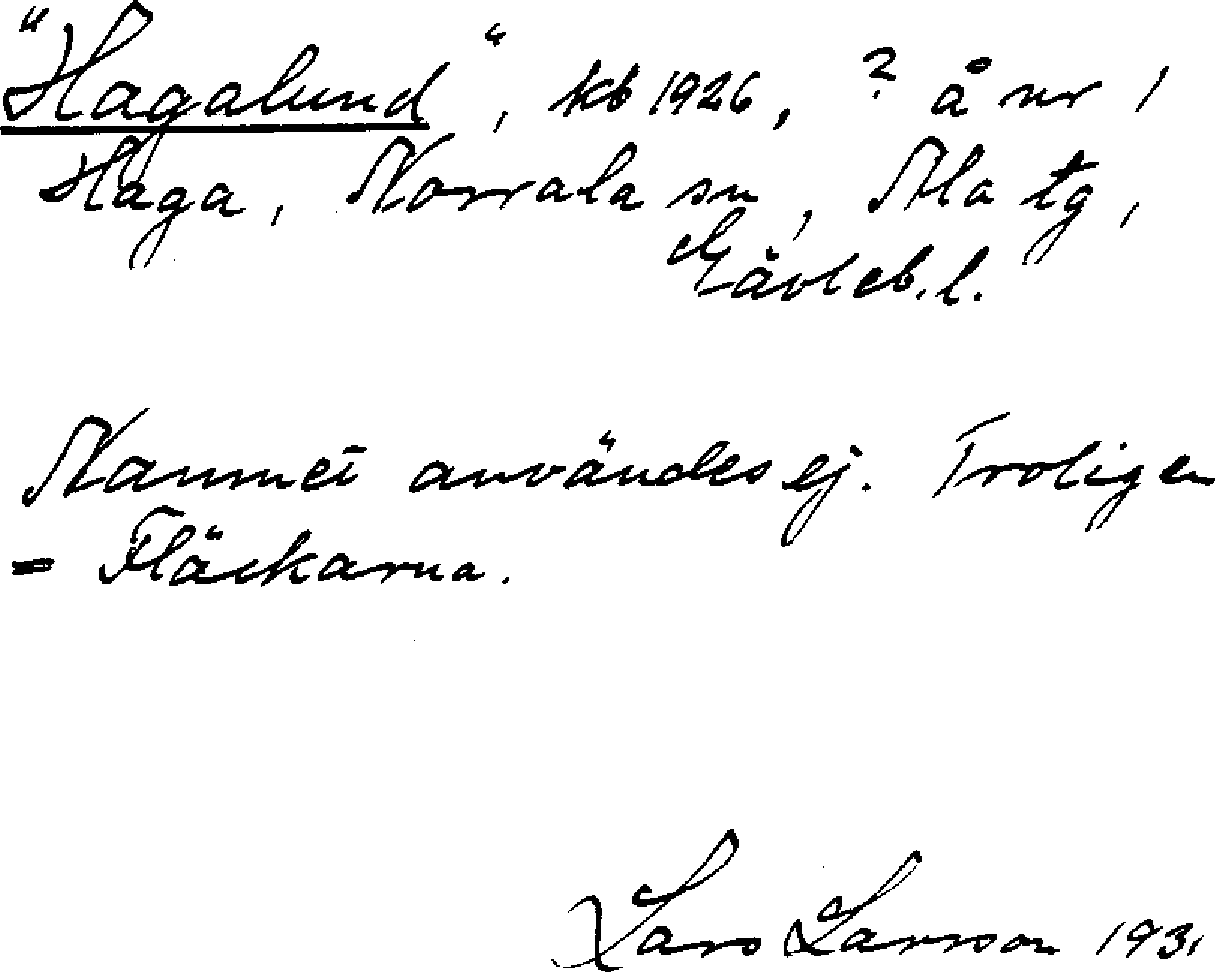 "Hagalund", kb 1926, ? å nr 1
Haga, Norrala sn, Ala tg,
Gävleb. l.
Namnet användes ej. Troligen
= Fläckarna.
Lars Larsson 1931